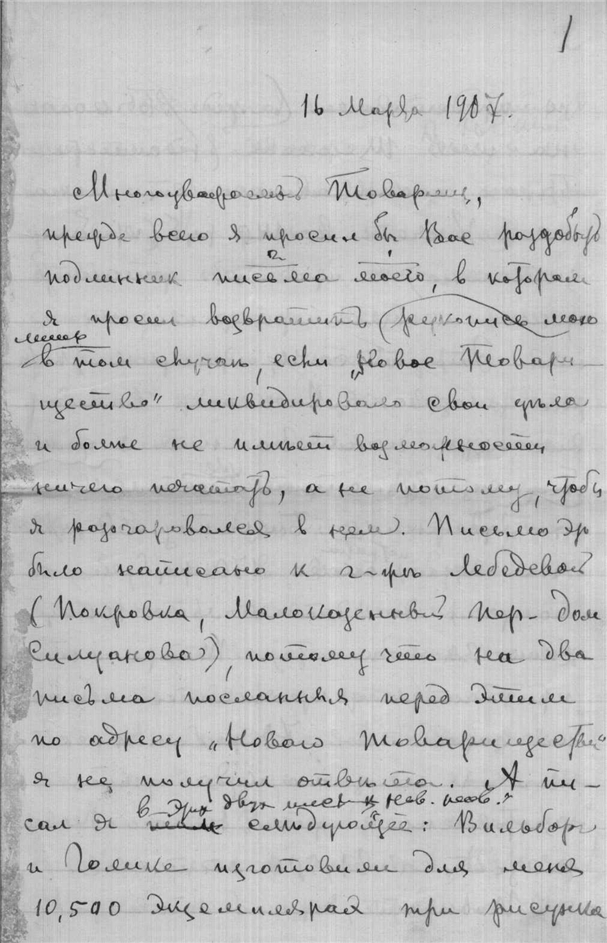 1
16 Марта 1907.
Многоуважаемый Товарищ,
прежде всего я просил бы Вас раздобыть
подлинник письма моего, в котором
я просил возвратить рукопись мою
лишь
в том случае, если „Новое Товари-
щество" ликвидировало свои дѣла
и болѣе не имѣет возможности
ничего печатать, а не потому, чтобы
я разочаровался в нем. Письмо это
было написано к г-жѣ Лебедевой
(Покровка, Малоказенный пер. дом
Силуанова), потому что на два
письма посланныя перед этим
по адресу „Новаго товарищества"
я не получил отвѣта. А пи-
в этих двух письм к нов. тов.
сал я слѣдующее: Вильборг
и Голике изготовили для меня
10,500 экземплярах три рисунка